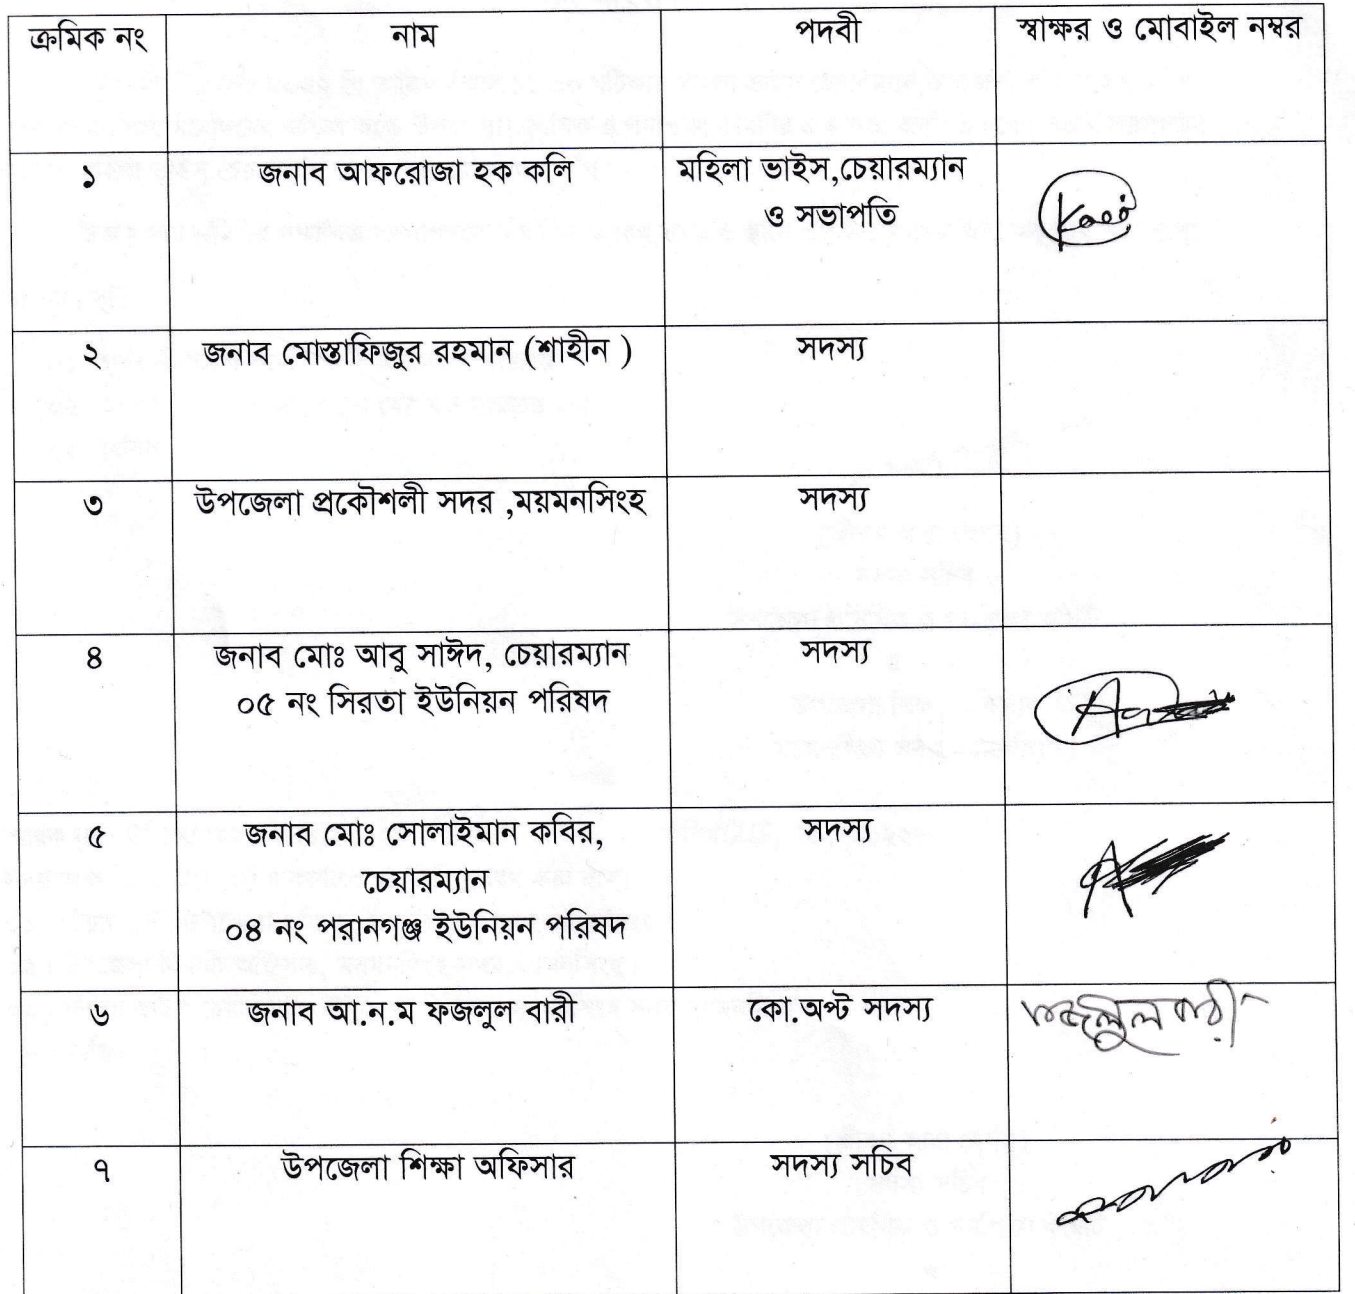 ক্রমিক নং নাম পদবী স্বাক্ষর ও মোবাইল নম্বর
১ জনাব আফরোজা হক কলি মহিলা ভাইস,চেয়ারম্যান
ও সভাপতি
২ জনাব মোস্তাফিজুর রহমান (শাহীন ) সদস্য
৩ উপজেলা প্রকৌশলী সদর ,ময়মনসিংহ সদস্য
৪ জনাব মোঃ আবু সাঈদ, চেয়ারম্যান সদস্য
০৫ নং সিরতা ইউনিয়ন পরিষদ
৫ জনাব মোঃ সোলাইমান কবির, সদস্য
চেয়ারম্যান
০৪ নং পরানগঞ্জ ইউনিয়ন পরিষদ
৬ জনাব আ.ন.ম ফজলুল বারী কো.অপ্ট সদস্য ফজলুল বারী
৭ উপজেলা শিক্ষা অফিসার সদস্য সচিব